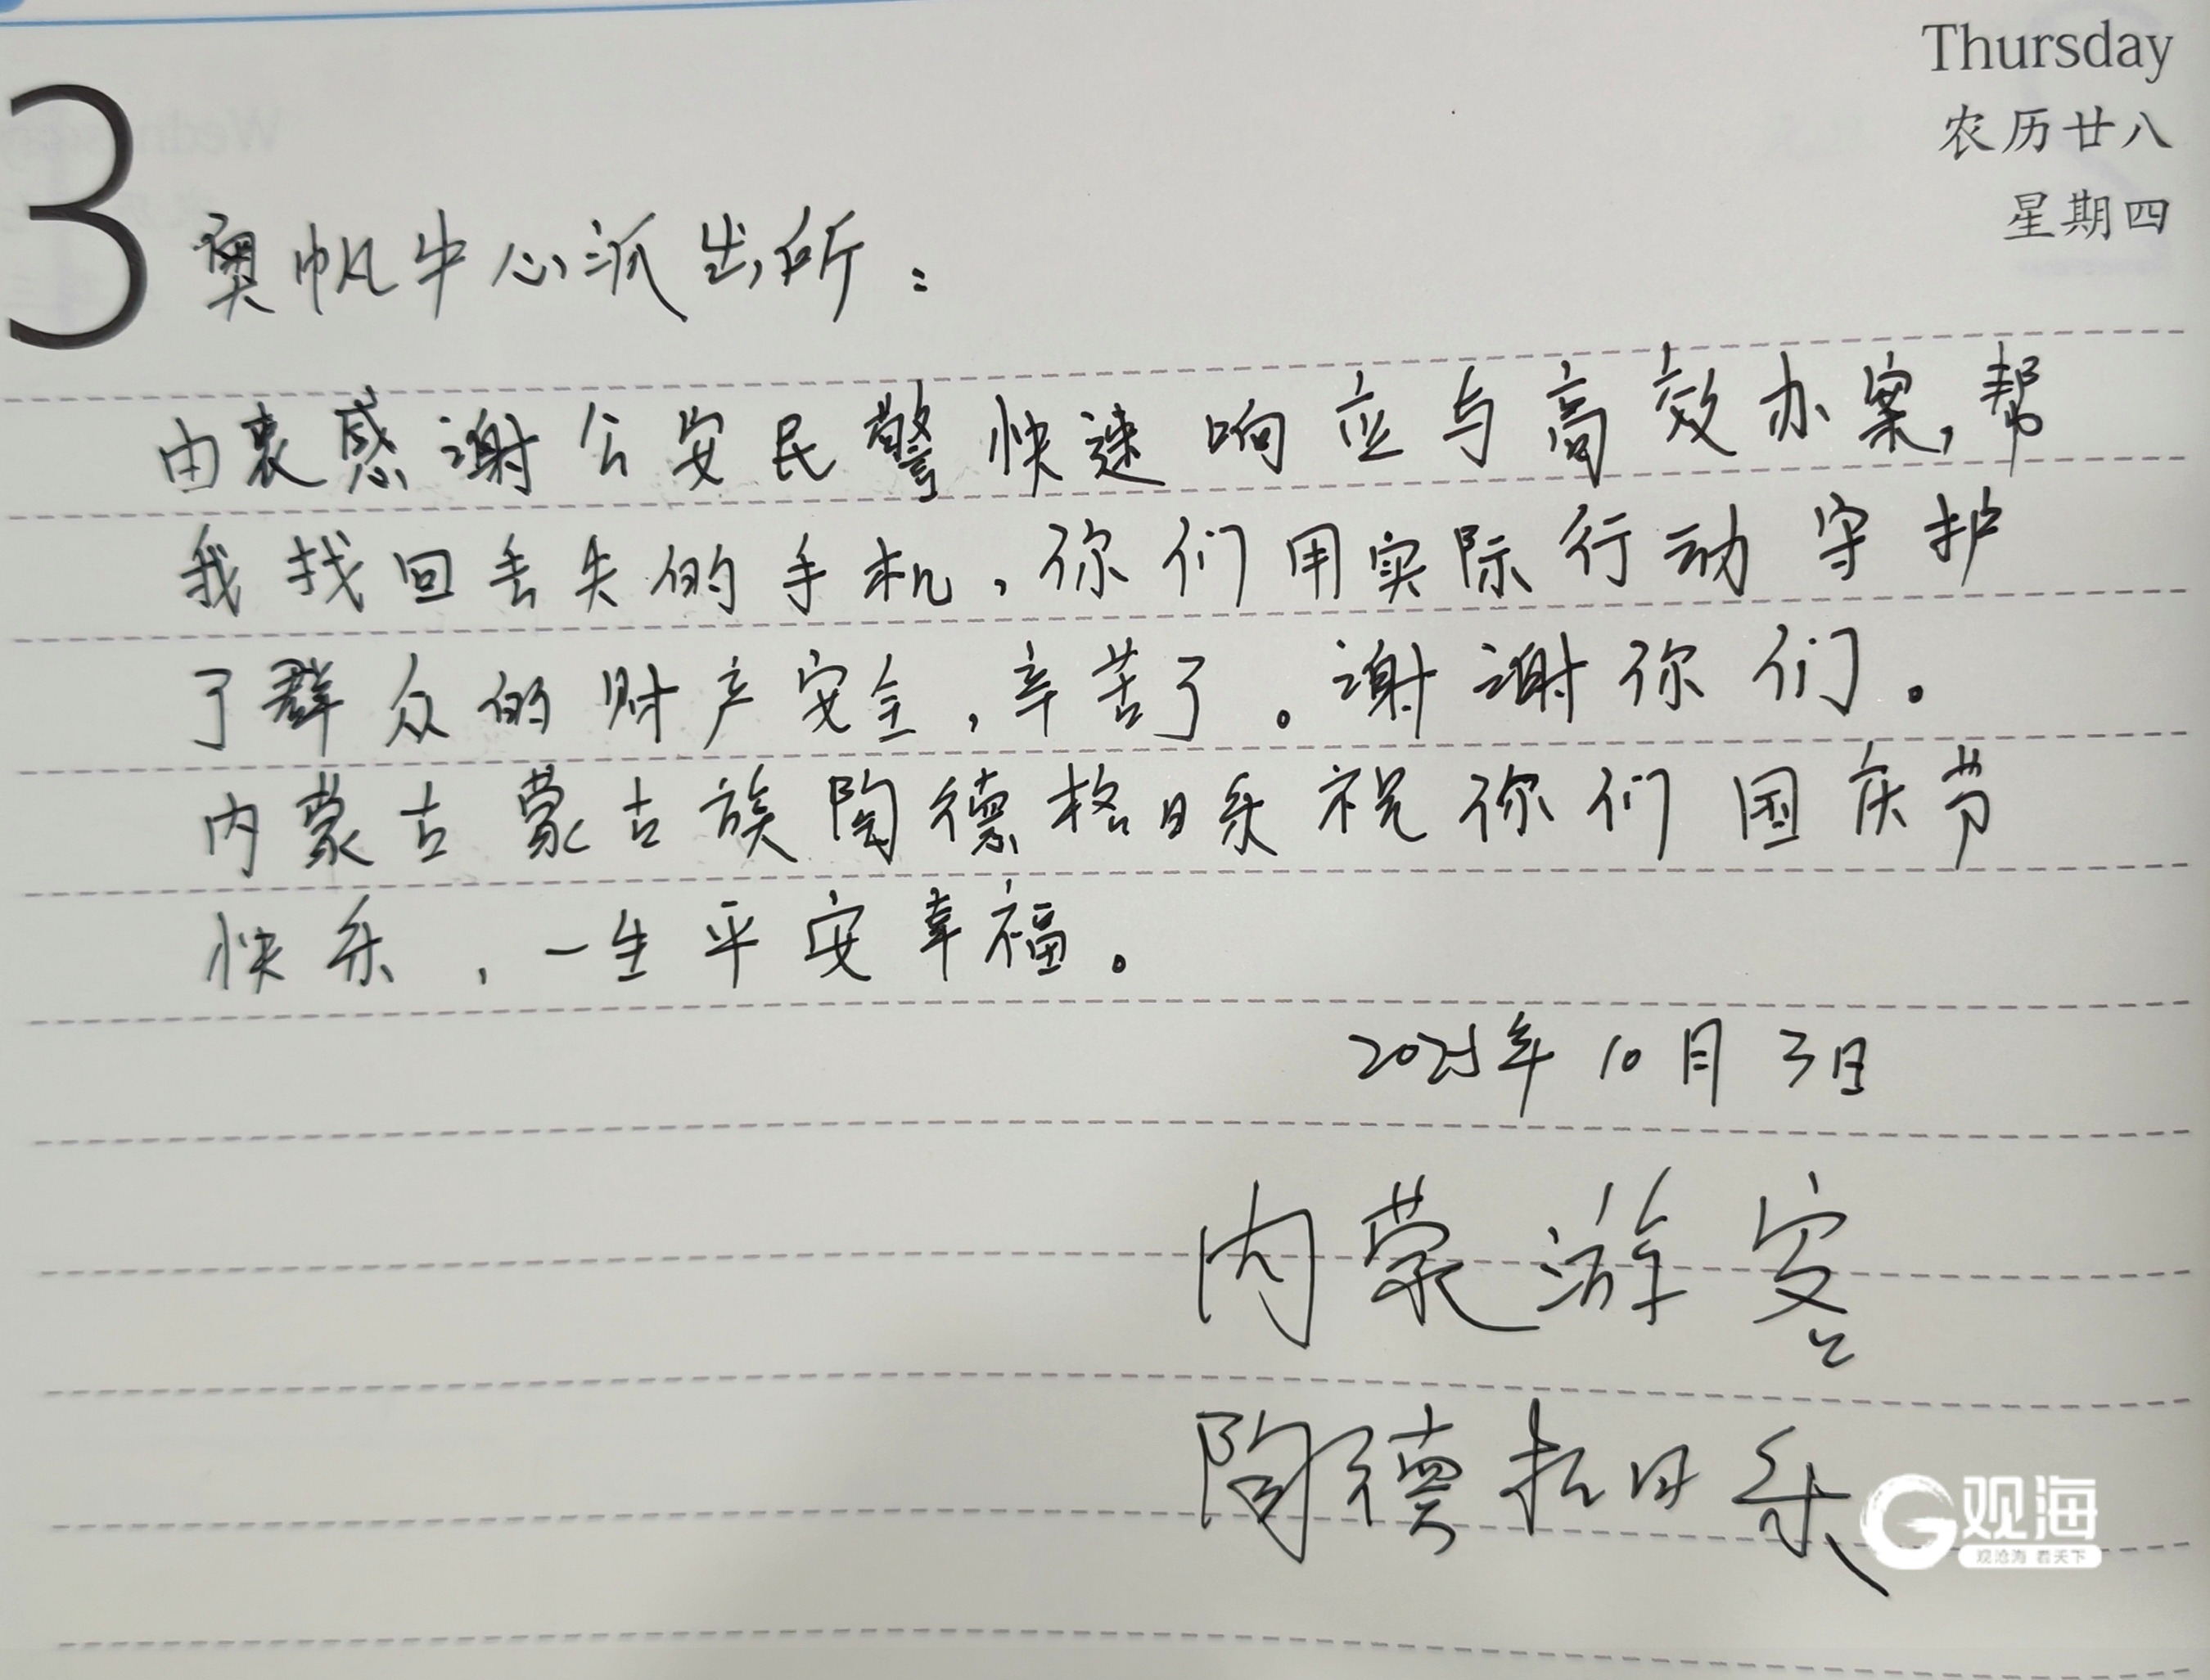 3
Thursday
农历廿八
星期四
奥帆中心派出所：
由衷感谢公安民警快速响应与高效办案，帮
我找回丢失的手机，你们用实际行动守护
了群众的财产安全，辛苦了。谢谢你们。
内蒙古蒙古族陶德格日乐祝你们国庆节
快乐，一生平安幸福。
2025年10月3日
内蒙游客
陶德格日乐
观海
观沧海 看天下